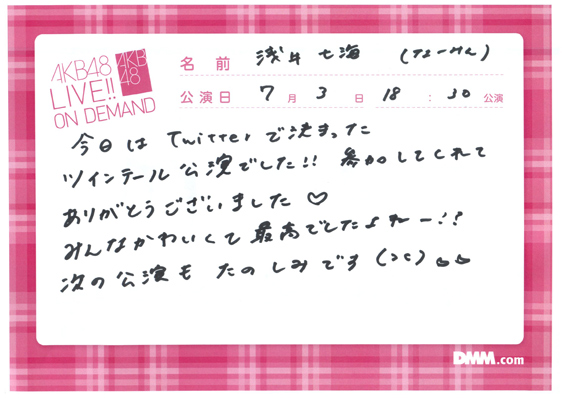 AKB48
LIVE!!
ON DEMAND
AKB
48
名前 浅井七海 (なーみん)
公演日 7月3日 18:30公演
今日は Twitterで決まった
ツインテール公演でした!! 参加してくれて
ありがとうございました♡
みんなかわいくて 最高でしたよねー!!
次の公演も たのしみです
DMM.com